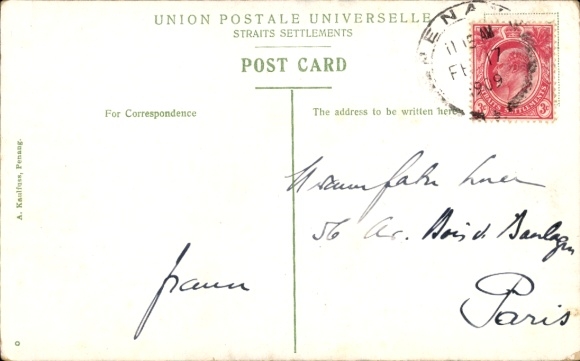 UNION POSTALE UNIVERSELLE
STRAITS SETTLEMENTS
POST CARD
For Correspondence
The address to be written here
A. Kaulfuss, Penang.
PENA
56 Av. Bois d Boulogne
Paris